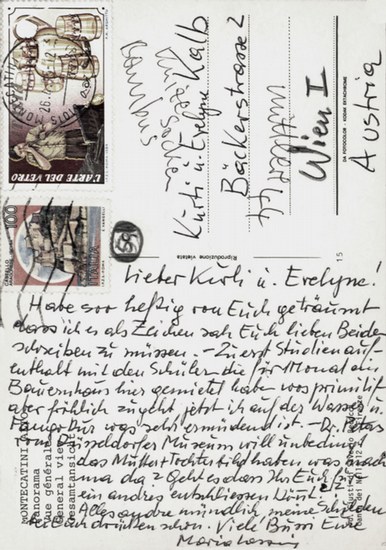 Kurti u. Evelyne Kalb
Bäckerstrasse 2
Wien I
Austria
L'ARTE DEL VETRO
100
Riproduzione vietata
DA FOTOCOLOR - KODAK EKTACHROME
15
Lieber Kurti u. Evelyne!
Habe so heftig von Euch geträumt
dass ich es als Zeichen sah Euch lieben Beiden
schreiben zu müssen. – Zuerst Studienauf-
enthalt mit den Schüler die für 1 Monat ein
Bauernhaus hier gemietet haben wos primitiv
aber fröhlich zugeht jetzt ich auf der Wasser u.
Fango Kur was sehr ermüdend ist. – Dr. Peters
vom Düsseldorfer Museum will unbedingt
das Mutter + Tochter Bild haben was macht
ma da? Geht es dass Ihr Euch für
ein andres entschliessen könnt?
Alles andre mündlich, meine
bei Euch drücken schon. Viele Bussi Eure
Maria Lassnig
MONTECATINI
Panorama
Vue générale
General view
Gesamtansicht